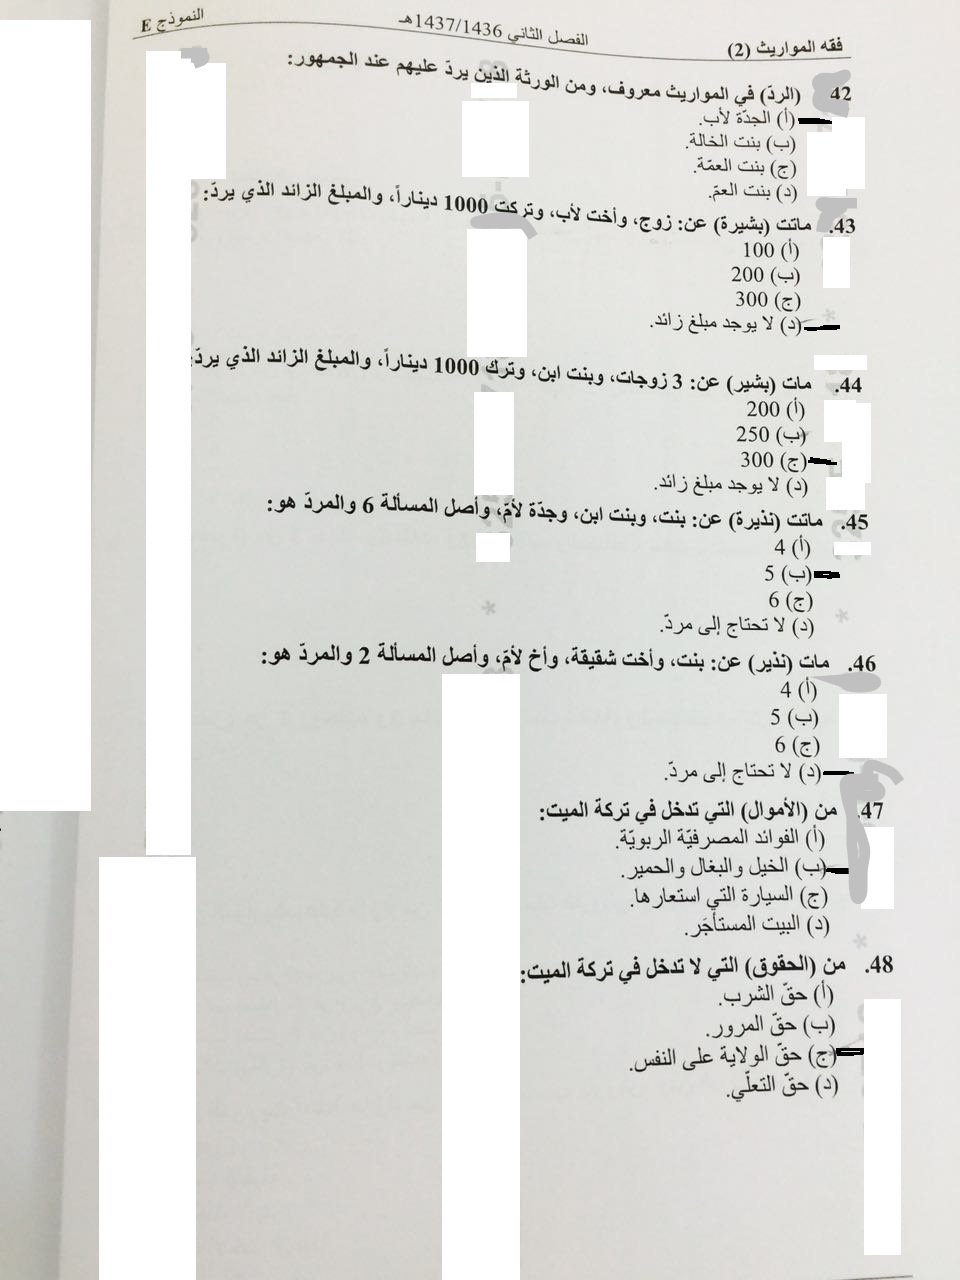 فقه المواريث (2) الفصل الثاني 1437/1436هـ النموذج E
42 (الردّ) في المواريث معروف، ومن الورثة الذين يردّ عليهم عند الجمهور:
(أ) الجدّة لأب.
(ب) بنت الخالة.
(ج) بنت العمّة.
(د) بنت العمّ.
43. ماتت (بشيرة) عن: زوج، وأخت لأب، وتركت 1000 ديناراً، والمبلغ الزائد الذي يردّ:
(أ) 100
(ب) 200
(ج) 300
(د) لا يوجد مبلغ زائد.
44. مات (بشير) عن: 3 زوجات، وبنت ابن، وترك 1000 ديناراً، والمبلغ الزائد الذي يردّ:
(أ) 200
(ب) 250
(ج) 300
(د) لا يوجد مبلغ زائد.
45. ماتت (نذيرة) عن: بنت، وبنت ابن، وجدّة لأمّ، وأصل المسألة 6 والمردّ هو:
(أ) 4
(ب) 5
(ج) 6
(د) لا تحتاج إلى مردّ.
46. مات (نذير) عن: بنت، وأخت شقيقة، وأخ لأمّ، وأصل المسألة 2 والمردّ هو:
(أ) 4
(ب) 5
(ج) 6
(د) لا تحتاج إلى مردّ.
47. من (الأموال) التي تدخل في تركة الميت:
(أ) الفوائد المصرفيّة الربويّة.
(ب) الخيل والبغال والحمير.
(ج) السيارة التي استعارها.
(د) البيت المستأجَر.
48. من (الحقوق) التي لا تدخل في تركة الميت:
(أ) حقّ الشرب.
(ب) حقّ المرور.
(ج) حقّ الولاية على النفس.
(د) حقّ التعلّي.